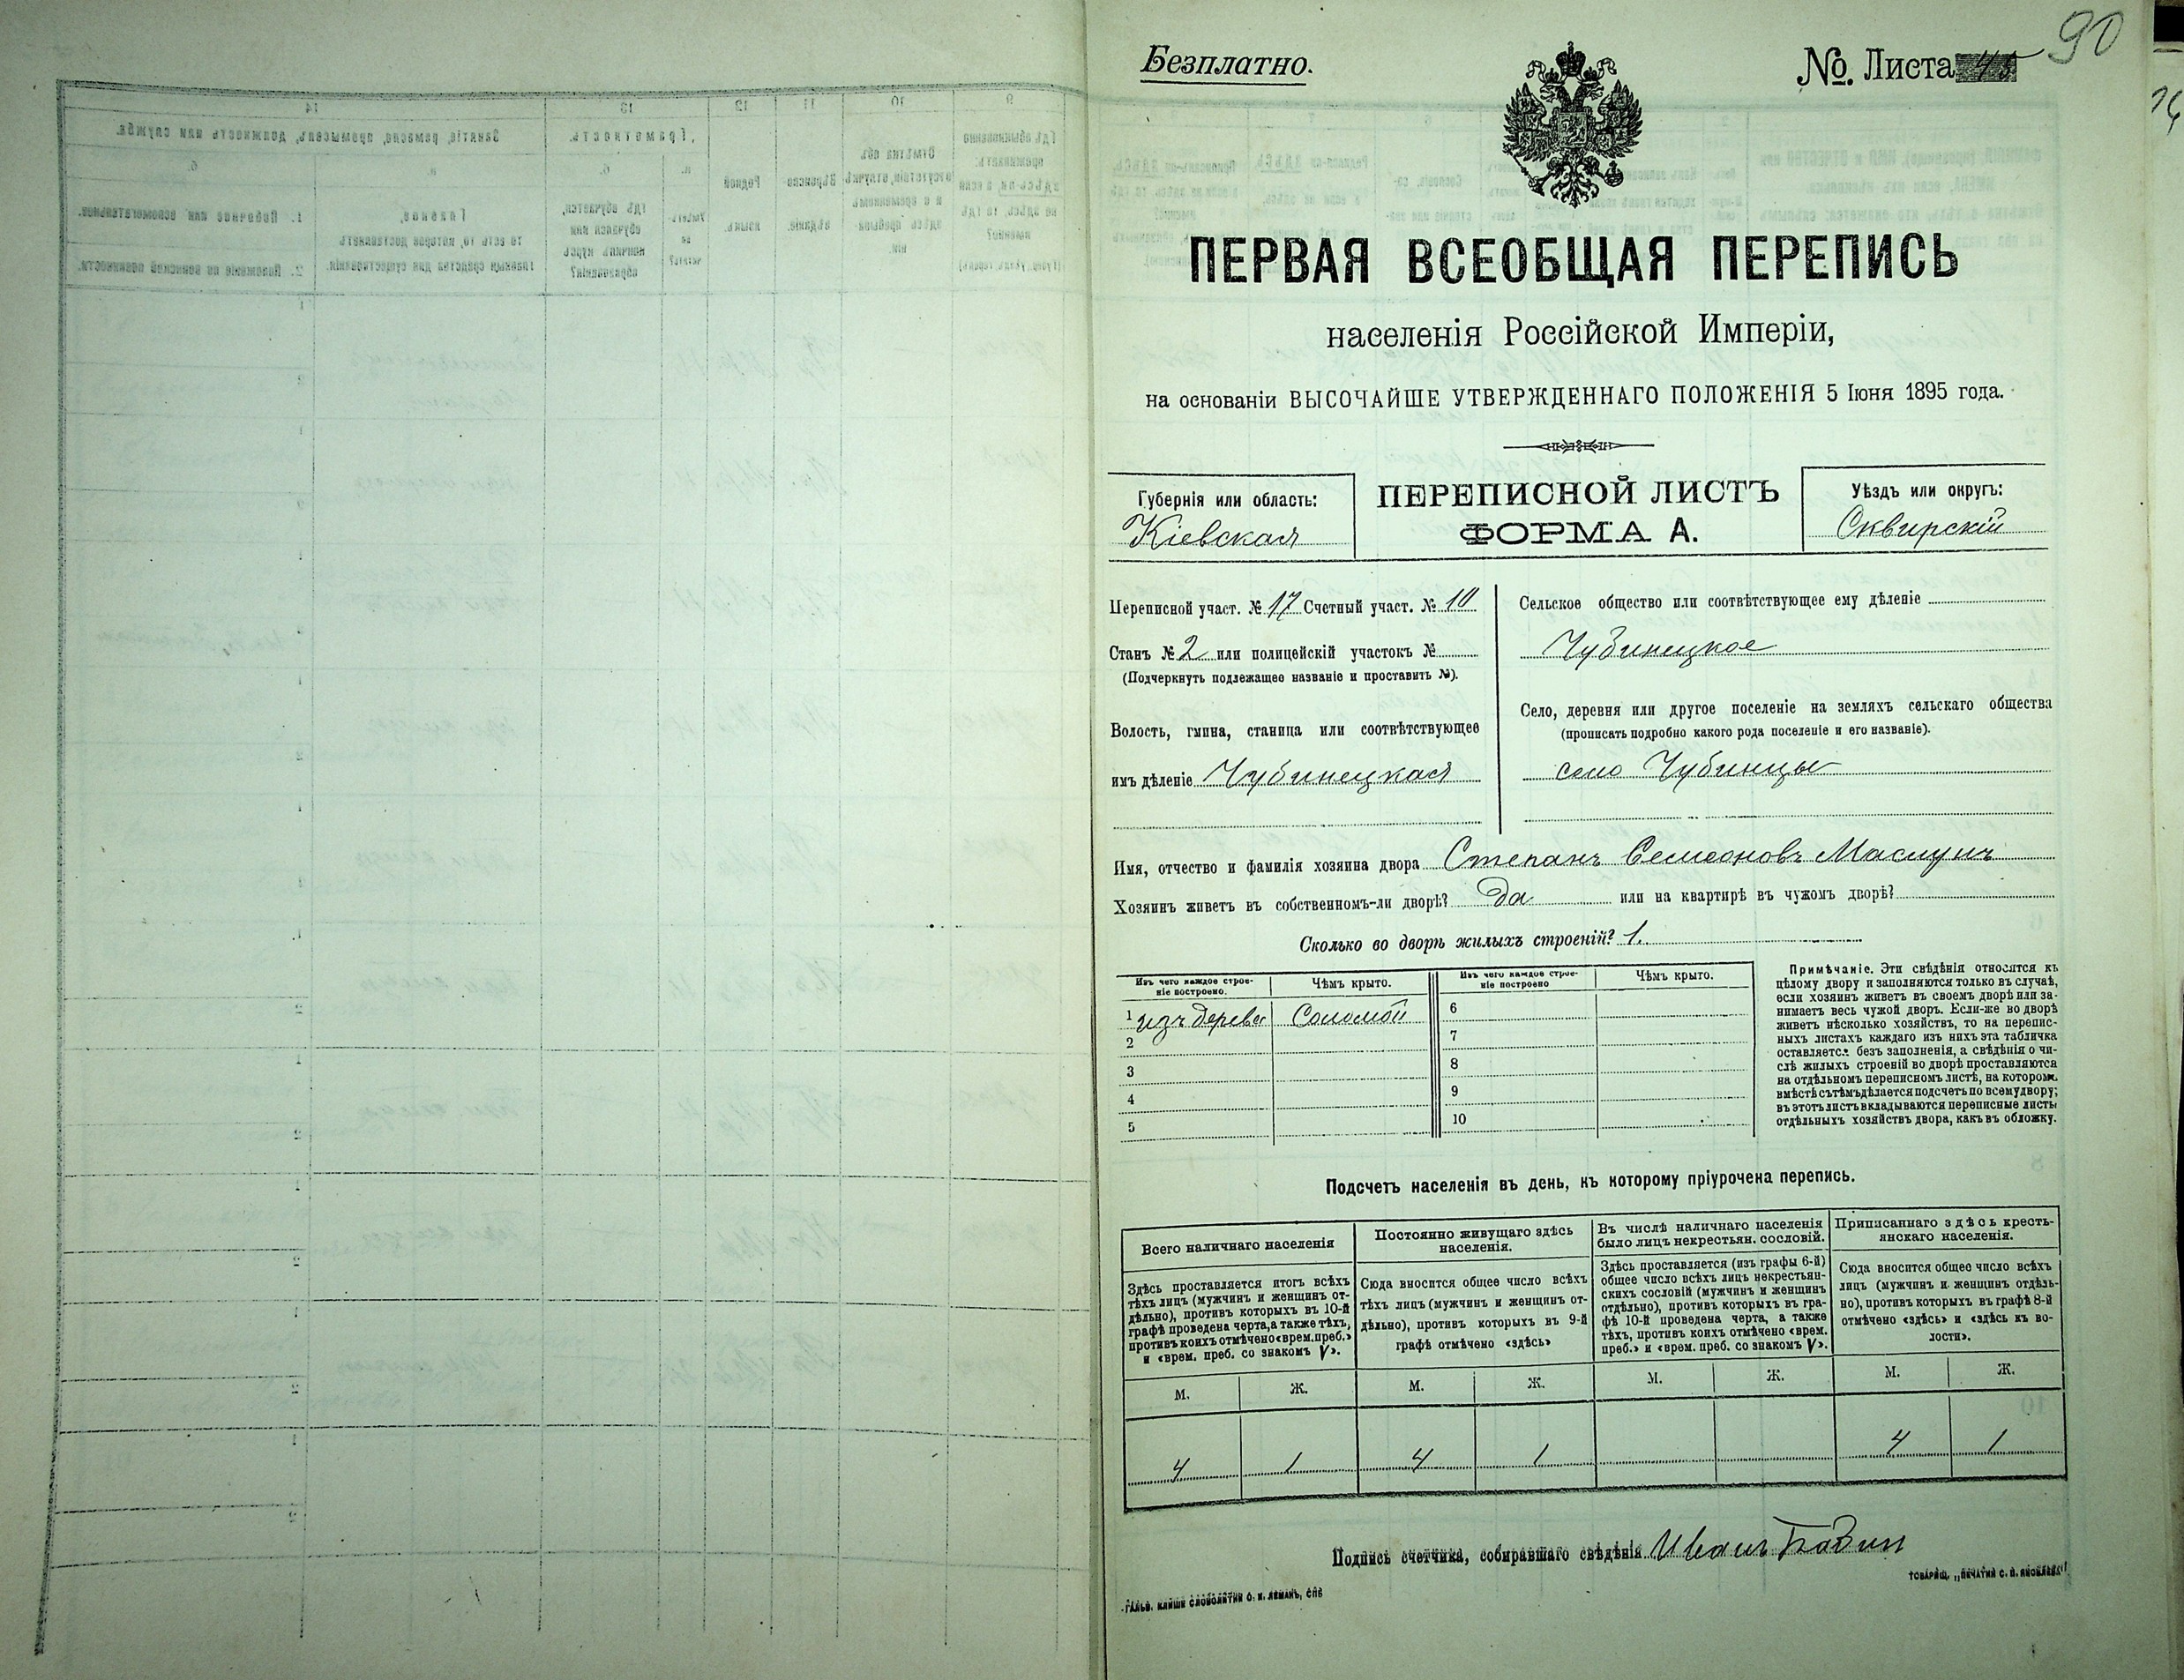 90
Безплатно.
№. Листа 45
ПЕРВАЯ ВСЕОБЩАЯ ПЕРЕПИСЬ
населенія Россійской Имперіи,
на основаніи ВЫСОЧАЙШЕ УТВЕРЖДЕННАГО ПОЛОЖЕНІЯ 5 Іюня 1895 года.
Губернія или область:
Кіевская
ПЕРЕПИСНОЙ ЛИСТЪ
ФОРМА А.
Уѣздъ или округъ:
Сквирскій
Переписной участ. № 17 Счетный участ. № 10
Станъ № 2 или полицейскій участокъ №
(Подчеркнуть подлежащее названіе и проставить №).
Волость, гмина, станица или соотвѣтствующее
имъ дѣленіе Чубинецкая
Сельское общество или соотвѣтствующее ему дѣленіе
Чубинецкое
Село, деревня или другое поселеніе на земляхъ сельскаго общества
(прописать подробно какого рода поселеніе и его названіе).
село Чубинцы
Имя, отчество и фамилія хозяина двора Степанъ Семеоновъ Маслунъ
Хозяинъ живетъ въ собственномъ-ли дворѣ? Да или на квартирѣ въ чужомъ дворѣ?
Сколько во дворѣ жилыхъ строеній? 1.
Изъ чего каждое строе-
ніе построено.
Чѣмъ крыто.
Изъ чего каждое строе-
ніе построено
Чѣмъ крыто.
1 изъ дерева Соломой 6
2 7
3 8
4 9
5 10
Примѣчаніе. Эти свѣдѣнія относятся къ
цѣлому двору и заполняются только въ случаѣ,
если хозяинъ живетъ въ своемъ дворѣ или за-
нимаетъ весь чужой дворъ. Если-же во дворѣ
живетъ нѣсколько хозяйствъ, то на перепис-
ныхъ листахъ каждаго изъ нихъ эта табличка
оставляется безъ заполненія, а свѣдѣнія о чи-
слѣ жилыхъ строеній во дворѣ проставляются
на отдѣльномъ переписномъ листѣ, на которомъ
вмѣстѣ съ тѣмъ дѣлается подсчетъ по всему двору;
въ этотъ листъ вкладываются переписные листы
отдѣльныхъ хозяйствъ двора, какъ въ обложку.
Подсчетъ населенія въ день, къ которому пріурочена перепись.
Всего наличнаго населенія
Здѣсь проставляется итогъ всѣхъ
тѣхъ лицъ (мужчинъ и женщинъ от-
дѣльно), противъ которыхъ въ 10-й
графѣ проведена черта, а также тѣхъ,
противъ коихъ отмѣчено «врем. преб.»
и «врем. преб. со знакомъ V».
Постоянно живущаго здѣсь
населенія.
Сюда вносится общее число всѣхъ
тѣхъ лицъ (мужчинъ и женщинъ от-
дѣльно), противъ которыхъ въ 9-й
графѣ отмѣчено «здѣсь»
Въ числѣ наличнаго населенія
было лицъ некрестьян. сословій.
Здѣсь проставляется (изъ графы 6-й)
общее число всѣхъ лицъ некрестьян-
скихъ сословій (мужчинъ и женщинъ
отдѣльно), противъ которыхъ въ гра-
фѣ 10-й проведена черта, а также
тѣхъ, противъ коихъ отмѣчено «врем.
преб.» и «врем. преб. со знакомъ V».
Приписаннаго здѣсь кресть-
янскаго населенія.
Сюда вносится общее число всѣхъ
лицъ (мужчинъ и женщинъ отдѣль-
но), противъ которыхъ въ графѣ 8-й
отмѣчено «здѣсь» и «здѣсь къ во-
лости».
М. Ж. М. Ж. М. Ж. М. Ж.
4 1 4 1 4 1
Подпись счетчика, собиравшаго свѣдѣнія Иванъ
ГАЛЬВ. КЛИШЕ СЛОВОЛИТНИ О. И. ЛЕМАНЪ, СПБ
ТОВАРИЩ. „ПЕЧАТНЯ С. П. ЯКОВЛЕВА“